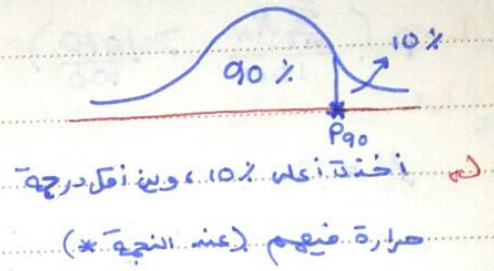 10 %
90 %
P90
أخذت أعلى 10% ، وين أقل درجة
حرارة فيهم (عند النجمة *)